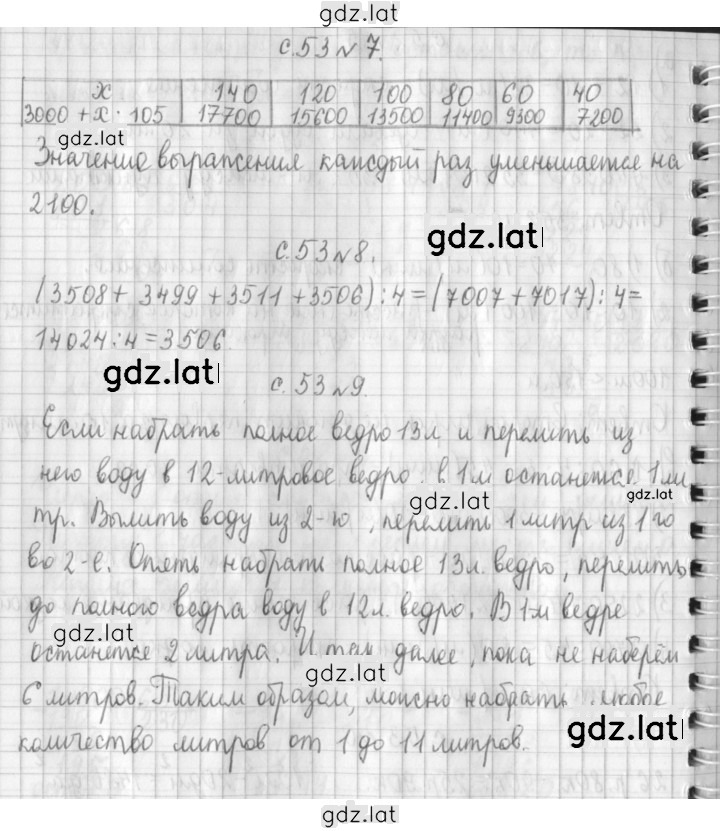 gdz.lat
с.53 № 7.
x 140 120 100 80 60 40
3000 + x · 105 17700 15600 13500 11400 9300 7200
gdz.lat
Значение выражения каждый раз уменьшается на
2100.
gdz.lat
с.53 № 8.
(3508 + 3499 + 3511 + 3506) : 4 = (7007 + 7017) : 4 =
14024 : 4 = 3506.
gdz.lat
с. 53 № 9.
Если набрать полное ведро 13л и перелить из
него воду в 12-литровое ведро. в 1м останется 1 ли
gdz.lat gdz.lat
тр. Вылить воду из 2-го, перелить 1 литр из 1го
во 2-е. Опять набрать полное 13л. ведро, перелить
до полного ведра воду в 12л. ведро. В 1-м ведре
gdz.lat
останется 2 литра. И так далее, пока не наберём
gdz.lat
6 литров. Таким образом, можно набрать любое
gdz.lat
количество литров от 1 до 11 литров.
gdz.lat